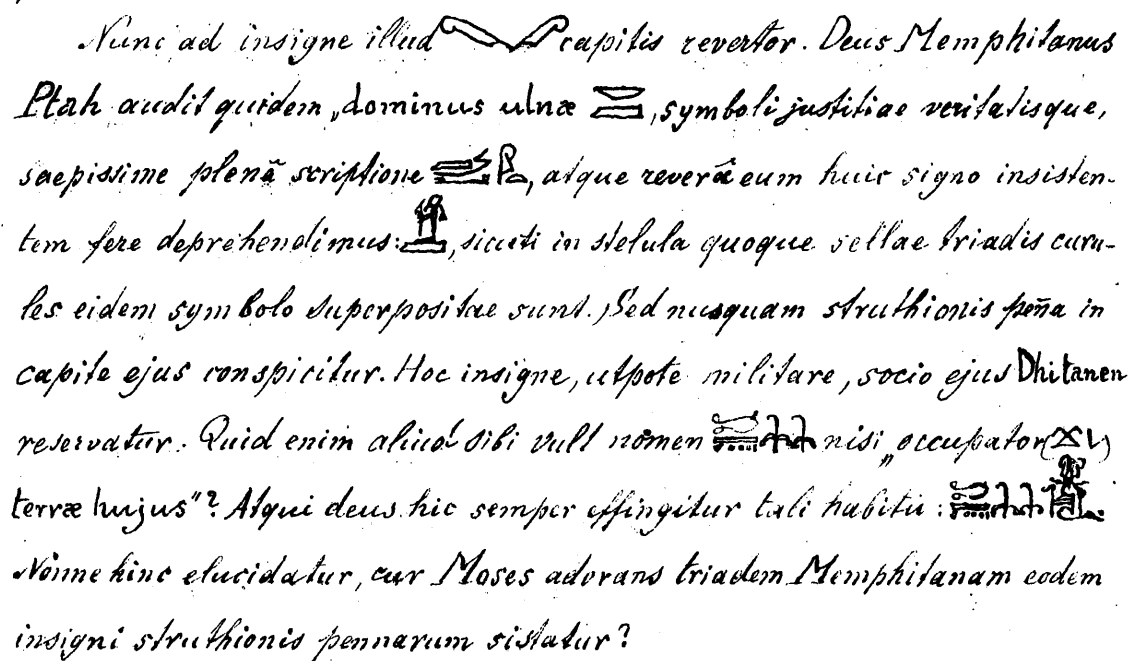 Nunc ad insigne illud capitis revertor. Deus Memphitanus
Ptah audit quidem „dominus ulnæ , symboli justitiae veritatisque,
saepissime plenâ scriptione , atque reverâ eum huic signo insisten-
tem fere deprehendimus: , sicuti in stelula quoque sellae triadis curu-
les eidem symbolo superpositae sunt. Sed nusquam struthionis peña in
capite ejus conspicitur. Hoc insigne, utpote militare, socio ejus Dhitanen
reservatur. Quid enim aliud sibi vult nomen nisi „occupator
terræ hujus"? Atqui deus hic semper effingitur tali habitu :
Nonne hinc elucidatur, cur Moses adorans triadem Memphitanam eodem
insigni struthionis pennarum sistatur?